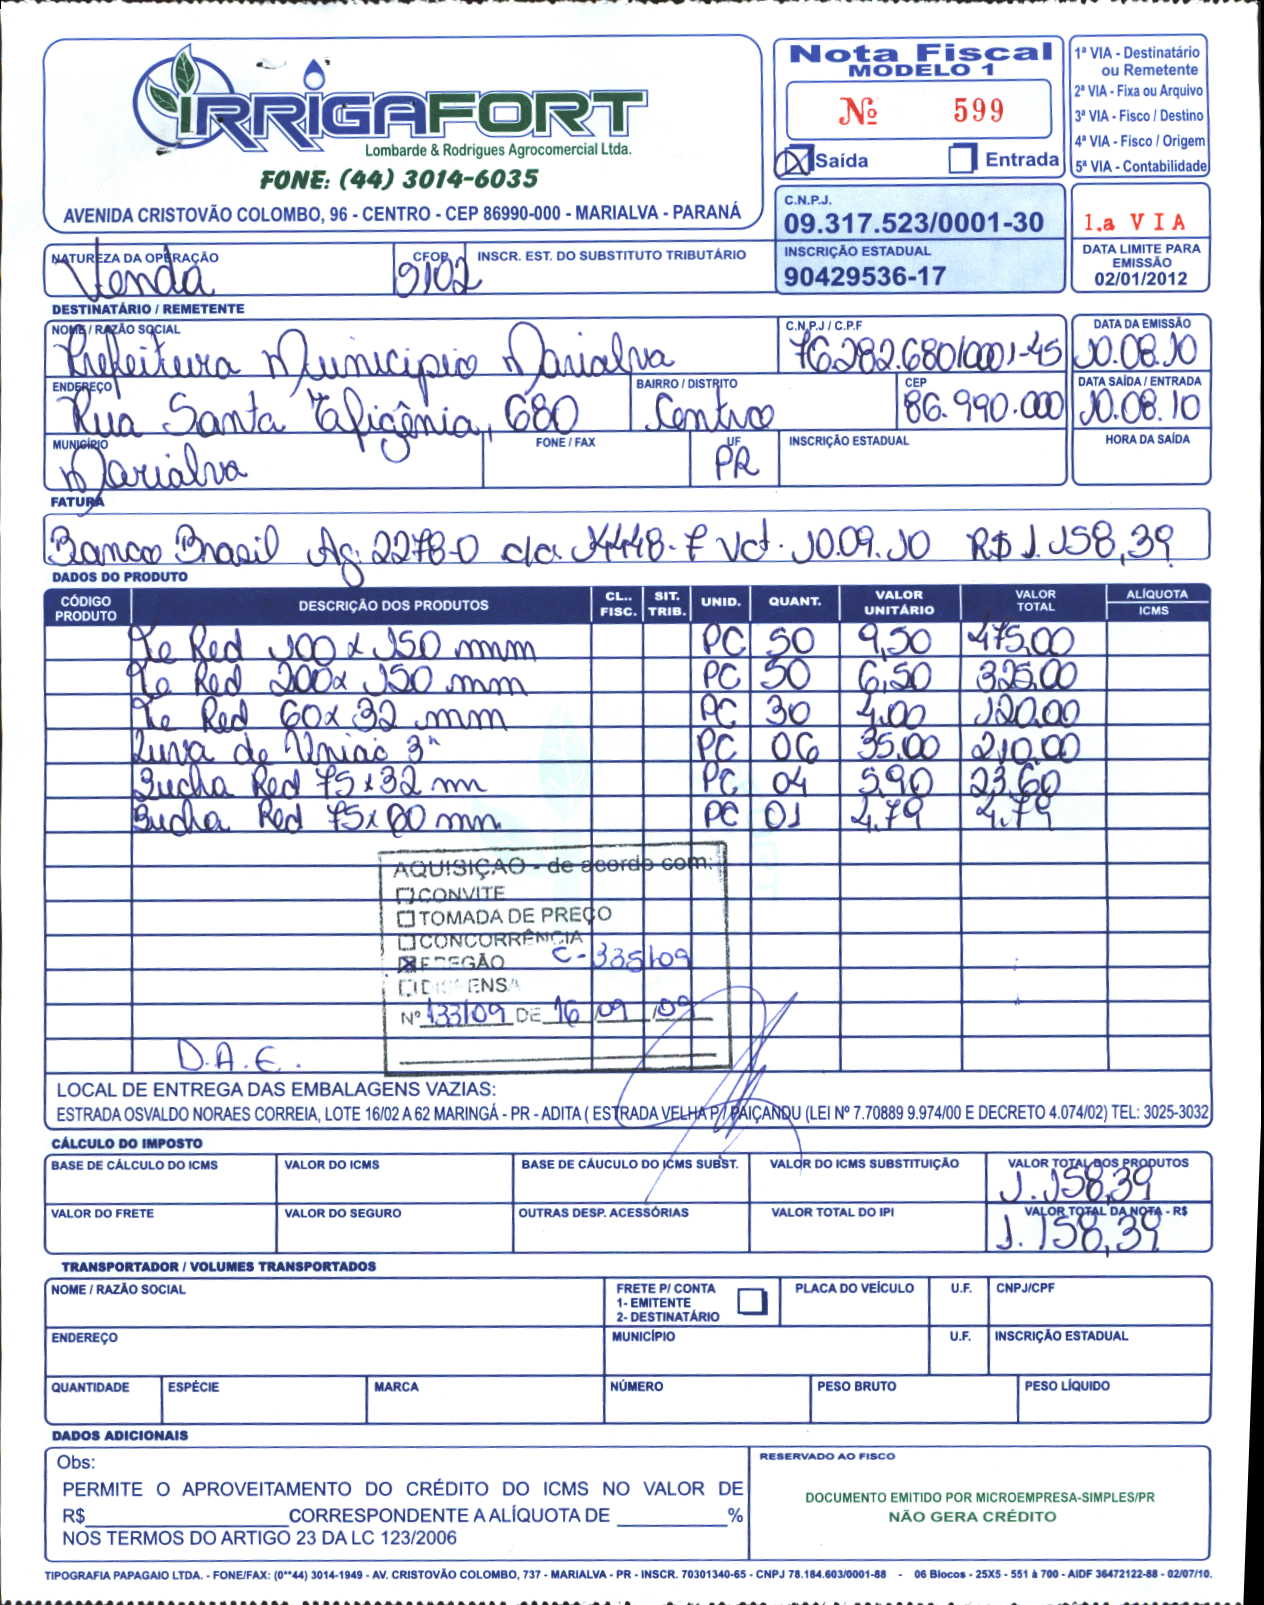 IRRIGAFORT
Lombarde & Rodrigues Agrocomercial Ltda.
FONE: (44) 3014-6035
AVENIDA CRISTOVÃO COLOMBO, 96 - CENTRO - CEP 86990-000 - MARIALVA - PARANÁ
Nota Fiscal
MODELO 1
Nº 599
X Saída Entrada
1ª VIA - Destinatário
ou Remetente
2ª VIA - Fixa ou Arquivo
3ª VIA - Fisco / Destino
4ª VIA - Fisco / Origem
5ª VIA - Contabilidade
C.N.P.J.
09.317.523/0001-30
INSCRIÇÃO ESTADUAL
90429536-17
1.a VIA
DATA LIMITE PARA
EMISSÃO
02/01/2012
NATUREZA DA OPERAÇÃO CFOP INSCR. EST. DO SUBSTITUTO TRIBUTÁRIO
Venda 5102
DESTINATÁRIO / REMETENTE
NOME / RAZÃO SOCIAL C.N.P.J / C.P.F DATA DA EMISSÃO
Prefeitura Municipio Marialva 76.282.680/0001-45 10.08.10
ENDEREÇO BAIRRO / DISTRITO CEP DATA SAÍDA / ENTRADA
Rua Santa Efigênia, 680 Centro 86.990.000 10.08.10
MUNICÍPIO FONE / FAX UF INSCRIÇÃO ESTADUAL HORA DA SAÍDA
Marialva PR
FATURA
Banco Brasil Ag. 2278-0 c/c. 14448-7 Vct. 10.09.10 R$ 1.158,39
DADOS DO PRODUTO
CÓDIGO PRODUTO DESCRIÇÃO DOS PRODUTOS CL.. FISC. SIT. TRIB. UNID. QUANT. VALOR UNITÁRIO VALOR TOTAL ALÍQUOTA ICMS
Te Red 100 x 150 mm PC 50 9,50 475,00
Te Red 200x 150 mm PC 50 6,50 325,00
Te Red 60x 32 mm PC 30 4,00 120,00
Luva de Uniao 3" PC 06 35,00 210,00
Bucha Red 75x32 mm PC 04 5,90 23,60
Bucha Red 75x60 mm PC 01 4,79 4,79
AQUISIÇÃO - de acordo com:
CONVITE
TOMADA DE PREÇO
CONCORRÊNCIA
X PREGÃO C-335/09
DISPENSA
Nº 133/09 DE 16/09/09
D.A.E.
LOCAL DE ENTREGA DAS EMBALAGENS VAZIAS:
ESTRADA OSVALDO NORAES CORREIA, LOTE 16/02 A 62 MARINGÁ - PR - ADITA ( ESTRADA VELHA P/ PAIÇANDU (LEI Nº 7.70889 9.974/00 E DECRETO 4.074/02) TEL: 3025-3032
CÁLCULO DO IMPOSTO
BASE DE CÁLCULO DO ICMS VALOR DO ICMS BASE DE CÁUCULO DO ICMS SUBST. VALOR DO ICMS SUBSTITUIÇÃO VALOR TOTAL DOS PRODUTOS
1.158,39
VALOR DO FRETE VALOR DO SEGURO OUTRAS DESP. ACESSÓRIAS VALOR TOTAL DO IPI VALOR TOTAL DA NOTA - R$
1.158,39
TRANSPORTADOR / VOLUMES TRANSPORTADOS
NOME / RAZÃO SOCIAL FRETE P/ CONTA PLACA DO VEÍCULO U.F. CNPJ/CPF
1- EMITENTE
2- DESTINATÁRIO
ENDEREÇO MUNICÍPIO U.F. INSCRIÇÃO ESTADUAL
QUANTIDADE ESPÉCIE MARCA NÚMERO PESO BRUTO PESO LÍQUIDO
DADOS ADICIONAIS
Obs:
PERMITE O APROVEITAMENTO DO CRÉDITO DO ICMS NO VALOR DE
R$____________CORRESPONDENTE A ALÍQUOTA DE ________%
NOS TERMOS DO ARTIGO 23 DA LC 123/2006
RESERVADO AO FISCO
DOCUMENTO EMITIDO POR MICROEMPRESA-SIMPLES/PR
NÃO GERA CRÉDITO
TIPOGRAFIA PAPAGAIO LTDA. - FONE/FAX: (0**44) 3014-1949 - AV. CRISTOVÃO COLOMBO, 737 - MARIALVA - PR - INSCR. 70301340-65 - CNPJ 78.184.603/0001-88 - 06 Blocos - 25X5 - 551 à 700 - AIDF 36472122-88 - 02/07/10.